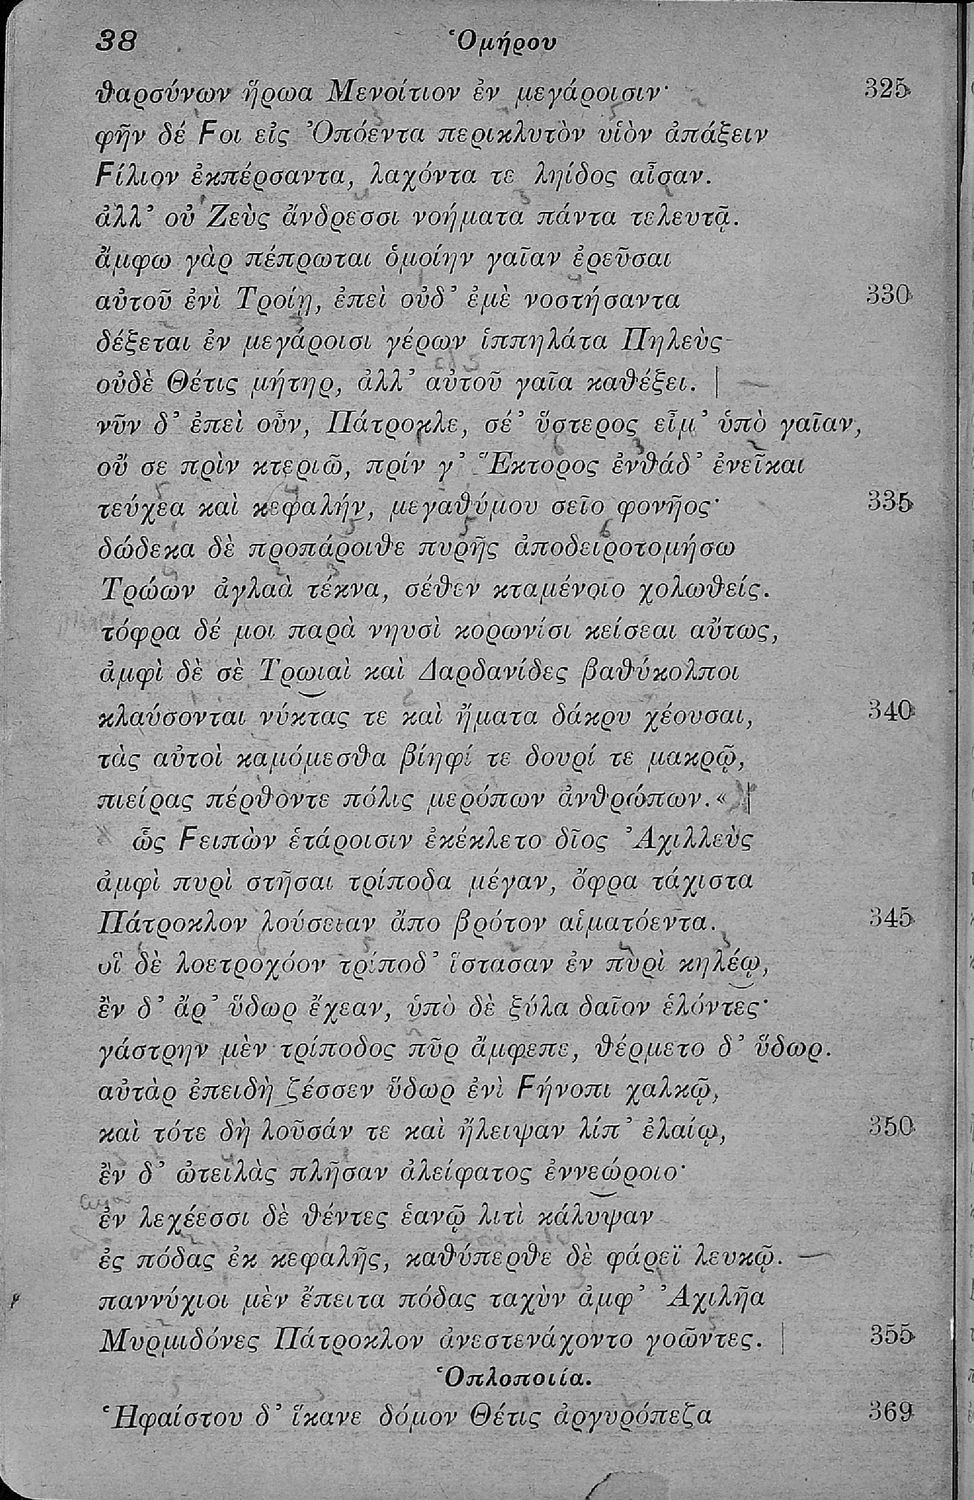 38 Ὁμήρου
θαρσύνων ἥρωα Μενοίτιον ἐν μεγάροισιν· 325
φῆν δέ Ϝοι εἰς Ὀπόεντα περικλυτὸν υἱὸν ἀπάξειν
Ϝίλιον ἐκπέρσαντα, λαχόντα τε ληίδος αἶσαν.
ἀλλ’ οὐ Ζεὺς ἄνδρεσσι νοήματα πάντα τελευτᾷ.
ἄμφω γὰρ πέπρωται ὁμοίην γαῖαν ἐρεῦσαι
αὐτοῦ ἐνὶ Τροίῃ, ἐπεὶ οὐδ’ ἐμὲ νοστήσαντα 330
δέξεται ἐν μεγάροισι γέρων ἱππηλάτα Πηλεὺς
οὐδὲ Θέτις μήτηρ, ἀλλ’ αὐτοῦ γαῖα καθέξει.
νῦν δ’ ἐπεὶ οὖν, Πάτροκλε, σέ’ ὕστερος εἶμ’ ὑπὸ γαῖαν,
οὔ σε πρὶν κτεριῶ, πρίν γ’ Ἕκτορος ἐνθάδ’ ἐνεῖκαι
τεύχεα καὶ κεφαλήν, μεγαθύμου σεῖο φονῆος· 335
δώδεκα δὲ προπάροιθε πυρῆς ἀποδειροτομήσω
Τρώων ἀγλαὰ τέκνα, σέθεν κταμένοιο χολωθείς.
τόφρα δέ μοι παρὰ νηυσὶ κορωνίσι κείσεαι αὔτως,
ἀμφὶ δὲ σὲ Τρωιαὶ καὶ Δαρδανίδες βαθύκολποι
κλαύσονται νύκτας τε καὶ ἤματα δάκρυ χέουσαι, 340
τὰς αὐτοὶ καμόμεσθα βίηφί τε δουρί τε μακρῷ,
πιείρας πέρθοντε πόλις μερόπων ἀνθρώπων.«
ὣς Ϝειπὼν ἑτάροισιν ἐκέκλετο δῖος Ἀχιλλεὺς
ἀμφὶ πυρὶ στῆσαι τρίποδα μέγαν, ὄφρα τάχιστα
Πάτροκλον λούσειαν ἄπο βρότον αἱματόεντα. 345
οἳ δὲ λοετροχόον τρίποδ’ ἵστασαν ἐν πυρὶ κηλέῳ,
ἐν δ’ ἄρ’ ὕδωρ ἔχεαν, ὑπὸ δὲ ξύλα δαῖον ἑλόντες·
γάστρην μὲν τρίποδος πῦρ ἄμφεπε, θέρμετο δ’ ὕδωρ.
αὐτὰρ ἐπειδὴ ζέσσεν ὕδωρ ἐνὶ Ϝήνοπι χαλκῷ,
καὶ τότε δὴ λοῦσάν τε καὶ ἤλειψαν λίπ’ ἐλαίῳ, 350
ἐν δ’ ὠτειλὰς πλῆσαν ἀλείφατος ἐννεώροιο·
ἐν λεχέεσσι δὲ θέντες ἑανῷ λιτὶ κάλυψαν
ἐς πόδας ἐκ κεφαλῆς, καθύπερθε δὲ φάρεϊ λευκῷ.
παννύχιοι μὲν ἔπειτα πόδας ταχὺν ἀμφ’ Ἀχιλῆα
Μυρμιδόνες Πάτροκλον ἀνεστενάχοντο γοῶντες. 355
Ὁπλοποιία.
Ἡφαίστου δ’ ἵκανε δόμον Θέτις ἀργυρόπεζα 369